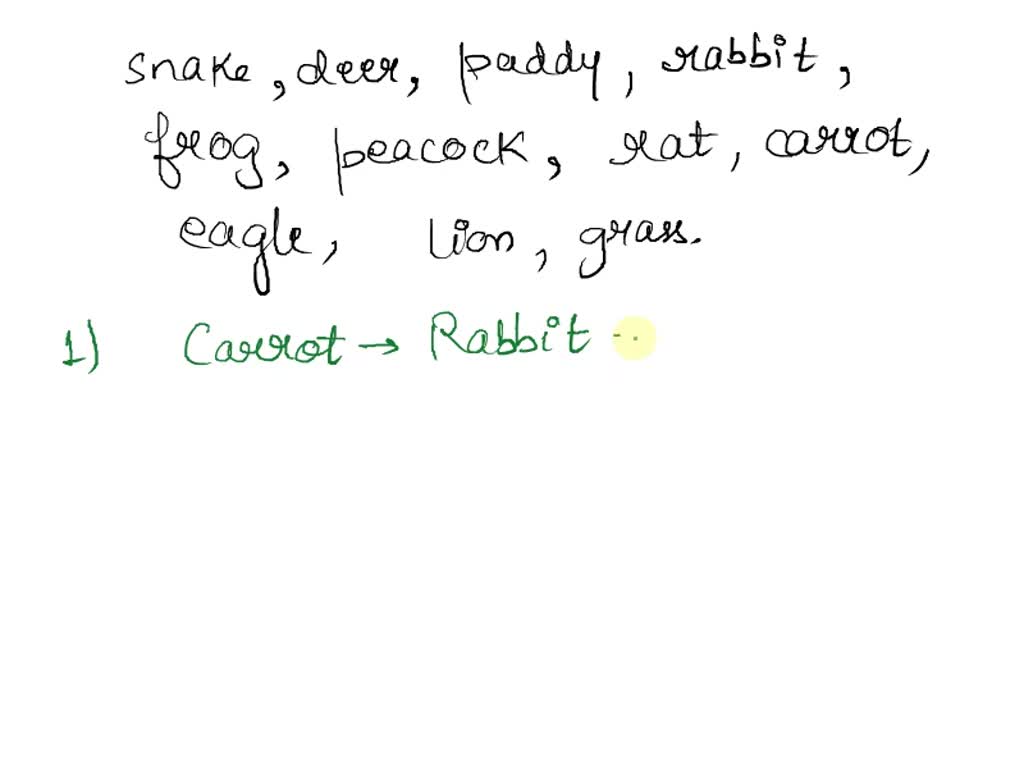 snake, deer, paddy, rabbit,
frog, peacock, rat, carrot,
eagle, lion, grass.
1) Carrot → Rabbit -